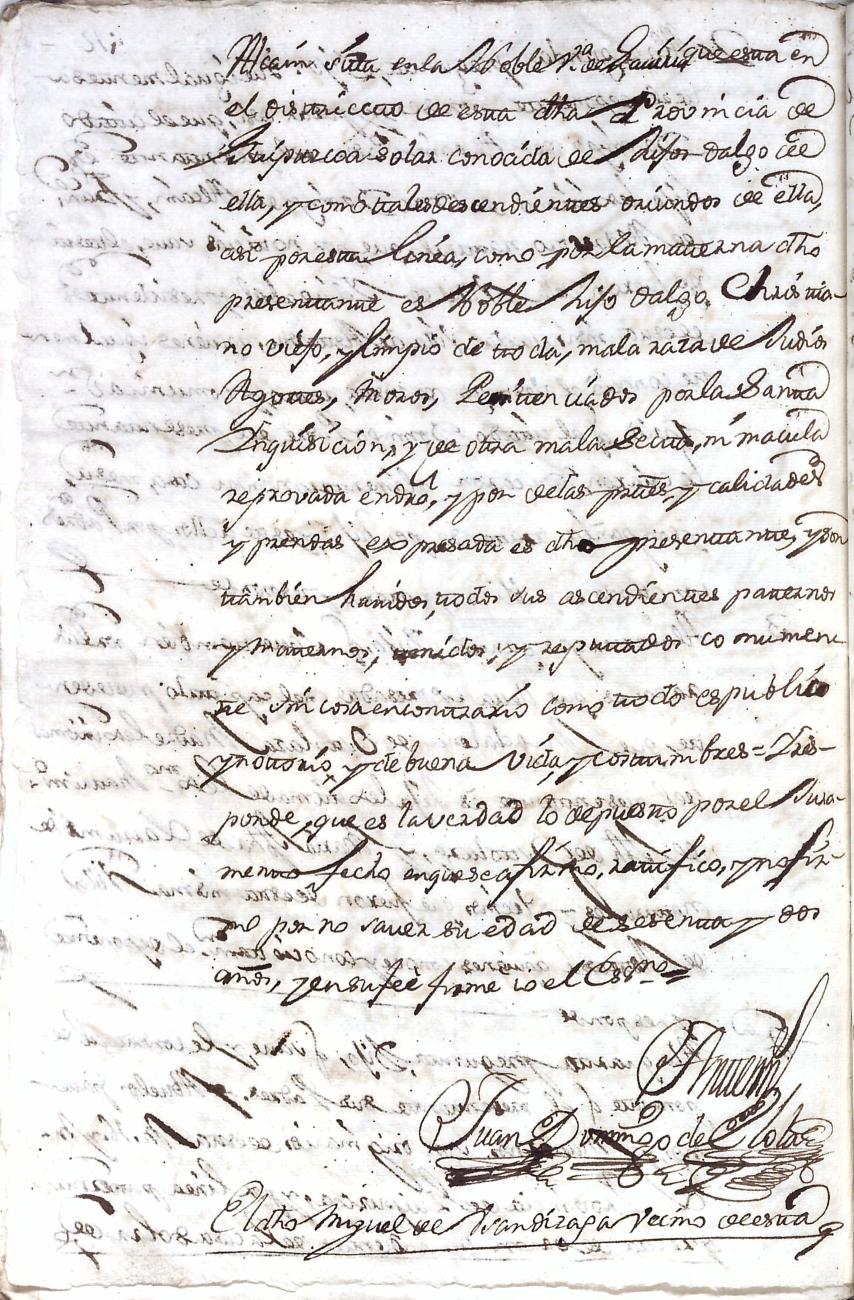 Alcain sita en la Noble v.ª de que esta en
el districto de esta dha Provincia de
Guipuzcoa solar conocida de hijos dalgo de
ella, y como tales descendientes oriundos de ella,
asi por esta linea, como por la materna dho
presentante es Noble hijo dalgo Christia-
no viejo, y limpio de toda, mala raza de Judios
Agotes, Moros, Penitenciados por la Santa
Inquisicion, y de otra mala secta, ni macula
reprovada en dro, y por de las partes y calidades
y prendas expresada es dho presentante, y son
tambien havidos, todos sus ascendientes paternos
y Maternos, tenidos, y reputados comunmen
te sin cosa encontrario como todo es publico
y notorio, y de buena vida, y costumbres = Y res-
ponde, que es la verdad lo depuesto por el Jura-
mento fecho en que se afirmo, ratifico, y no fir-
mo por no saver su edad de sesenta y dos
años, y en su fee firme io el Ess.no =
Antemi
Juan Domingo de
El dho Miguel de Vecino de esta